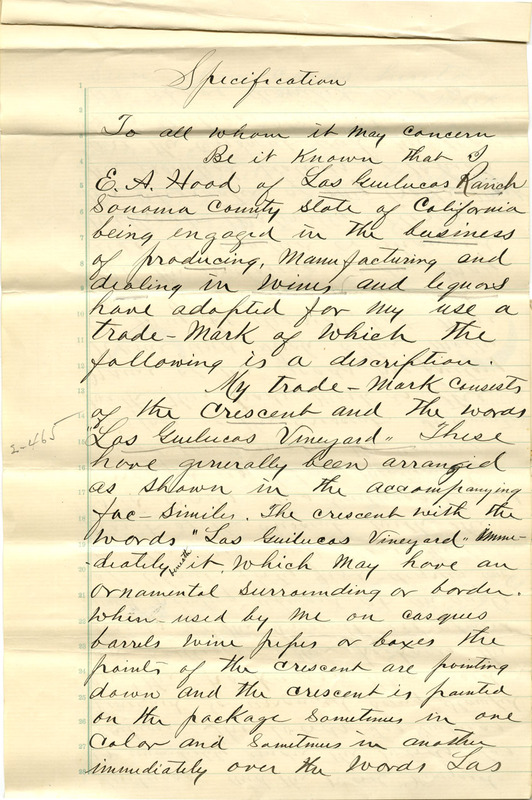 Specification
To all whom it may concern
Be it Known that I
E. A. Hood of Los Guilucos Ranch
Sonoma County State of California
being engaged in the business
of producing, Manufacturing and
dealing in Wines and liquors
have adopted for my use a
trade-Mark of Which the
following is a discription.
My trade-Mark Consists
of the Crescent and the words
"Los Guilucos Vineyard" These
I-465
have generally been arranged
as shown in the accompanying
fac-similes. The crescent with the
words "Los Guilucos Vineyard" imme-
-diately beneath it, which may have an
ornamental surrounding or border.
When used by me on casques
barrels wine pipes or boxes the
points of the crescent are pointing
down and the crescent is painted
on the package sometimes in one
color and sometimes in another
immediately over the words Los